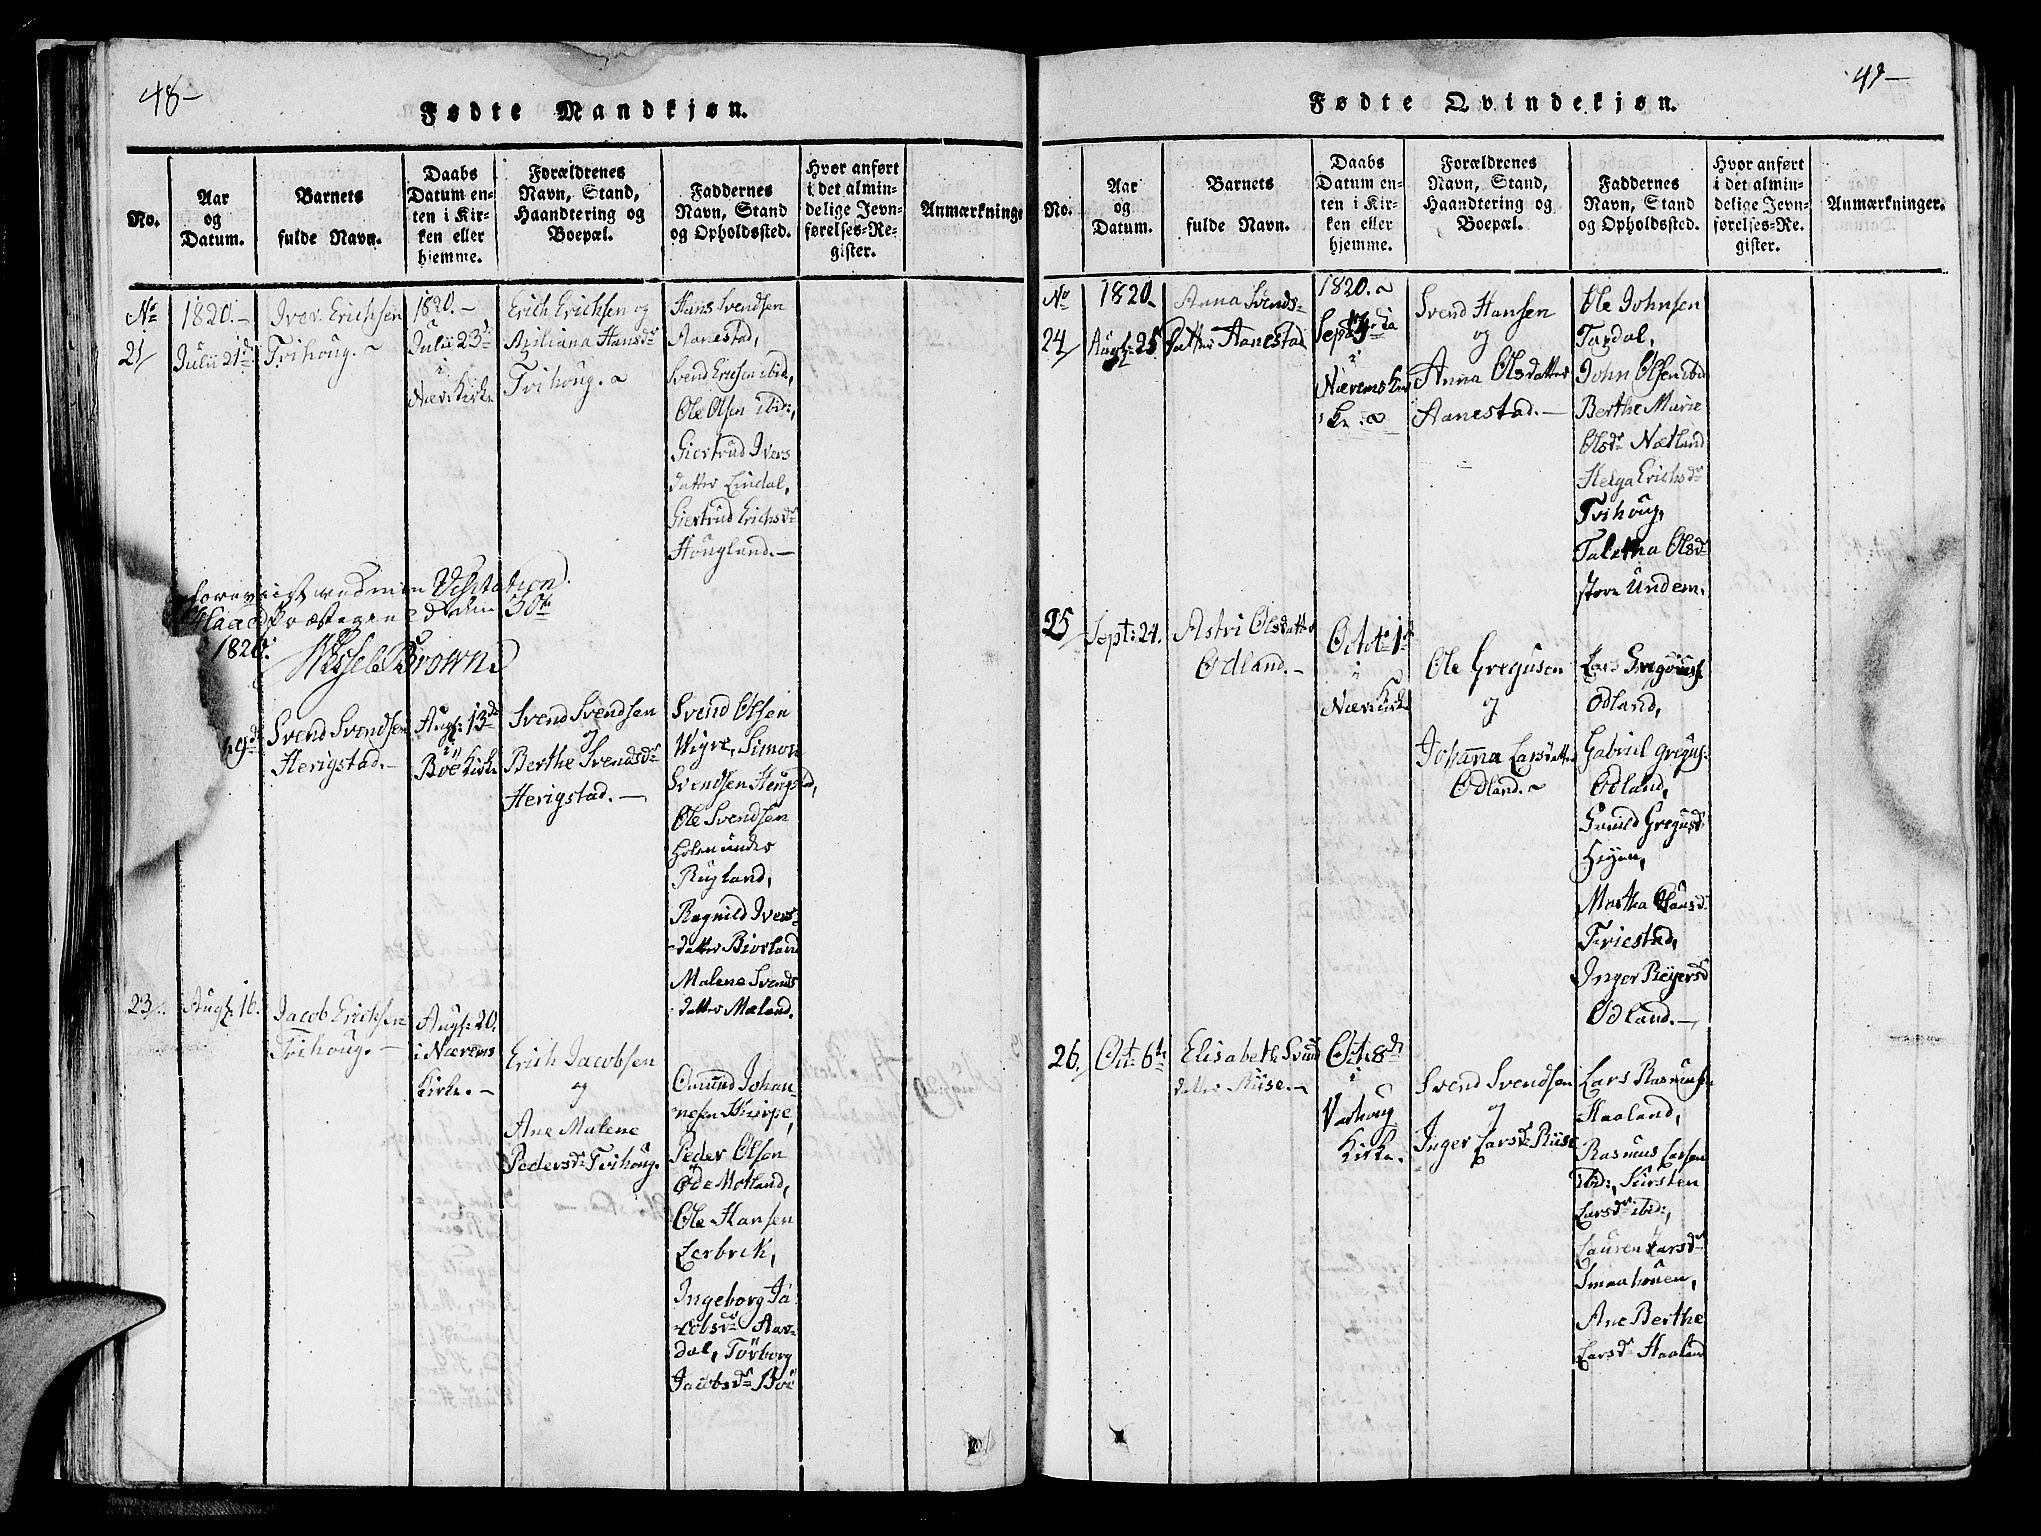 48-
Fødte Mandkjøn.
No.
Aar
og
Datum.
Barnets
fulde Navn.
Daabs
Datum en-
ten i Kir-
ken eller
hjemme.
Forældrenes
Navn, Stand,
Haandtering og
Boepæl.
Faddernes
Navn, Stand
og Opholdssted.
Hvor anført
i det almin-
delige Jevn-
førelses-Re-
gister.
Anmærkninge
No
21
1820.-
Julii 21d
Iver Erichsen
Tvihoug.
1820.-
Julii 23d
i
Næri Kirke
Erich Erichsen og
Hansdr
Tvihoug.
Hans Svendsen
Aanestad,
Svend Ericsen ibid,
Ole Olsen ibid:,
Giertrud Ivers
datter Lindal,
Giertrud Erichsdr
Hougland.-
foreviist ved min Visitation
Præstegaard den 30te
1820.
Wessel Brown
19de
Svend Svendsen
Herigstad.-
Augs: 13de
i
Böe Kirke
Svend Svendsen
og
Berthe Svendsdr
Herigstad.-
Svend Olsen
Wigre, Simon
Svendsen
Ole Svendsen
Holen under
Rugland,
Ragnild Ivers-
datter Biorland
Malene Svends
datter Mæland.
23
Augs: 16.
Jacob Erichsen
Tvihoug.-
Augs: 20.
i Nærems
Kirke.-
Erich Jacobsen
og
Ane Malene
Pedersdr Tvihoug.
Omund Johan-
nesen Kuirpe,
Peder Olsen
Öde Motland,
Ole Hansen
Lerbrek,
Ingeborg Ja
cobsdr Aar-
dal, Törborg
Jacobsdr Böe
49-
Fødte Qvindekjøn.
No.
Aar
og
Datum.
Barnets
fulde Navn.
Daabs
Datum en-
ten i Kir-
ken eller
hjemme.
Forældrenes
Navn, Stand,
Haandtering og
Boepæl.
Faddernes
Navn, Stand
og Opholdssted.
Hvor anført
i det almin-
delige Jevn-
førelses-Re-
gister.
Anmærkninger.
No
24
1820.
Augs: 25
Anna Svends-
datter Aanestad
1820.
Sept: 3
i
Nærems Kir
ke.
Svend Hansen
og
Anna Olsdatter
Aanestad.-
Ole Johnsen
Taxdal,
John Olsen ibid
Berthe Marie
Olsdr Nætland
Helga Erichsdr
Tvihoug,
Taletha Olsdr
store Undem.
25
Sept: 24.
Astri Olsdatter
Odland.-
Octob: 1
i
Næri Kirke
Ole Gregusen
og
Johanna Larsdatter
Odland.
Lars
Odland,
Gabriel Gregus:
Odland,
Gunild Gregusdr
Heyen,
Martha Clausdr
Friestad,
Inger Reyersdr
Odland.-
26.
Oct: 6te
Elisabeth Svend
datter Riise.-
Oct: 8de
i
Varhoug
Kirke.
Svend Svendsen
og
Inger Larsdr Riise
Lars Rasmusen
Haaland,
Rasmus Larsen
ibid:, Kirsten
Larsdr ibid:,
Lauren Larsdr
Smaahouen,
Ane Berthe
Larsdr Haaland